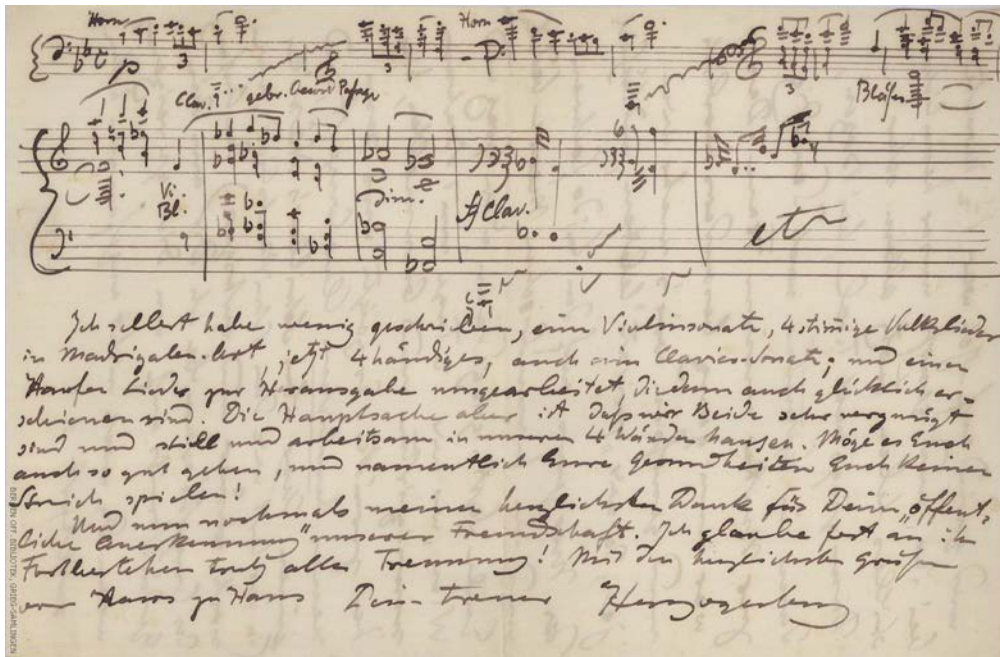 Horn
Horn
3
3
3
Clav. gebr. Passage
Bläser
Vi.
Bl.
Dim.
Clav.
etc
Ich selbst habe wenig geschrieben, eine Violinsonate, 4 stimmige Volkslieder
in Madrigalen-Art, jetzt 4 händiges, auch eine Clavier-Sonate; und einen
Haufen Lieder zur Herausgabe umgearbeitet, die denn auch glücklich er-
schienen sind. Die Hauptsache aber ist daß wir Beide sehr vergnügt
sind und still und arbeitsam in unseren 4 Wänden hausen. Möge es Euch
auch so gut gehen, und namentlich Eure Gesundheiten Euch keinen
Streich spielen!
Und nun nochmals meinen herzlichsten Dank für Deine „öffent-
liche Anerkennung" unserer Freundschaft. Ich glaube fest an ihr
Fortbestehen trotz aller Trennung! Mit den herzlichsten Grüßen
von Haus zu Haus Dein treuer Herzogenberg
BERGEN OFF. BIBLIOTEK, GRIEG-SAMLINGEN